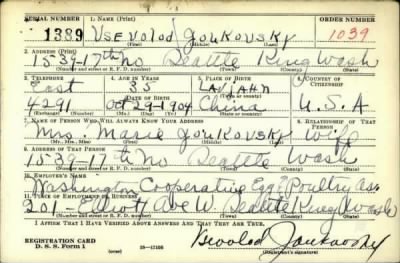 SERIAL NUMBER 1. NAME (Print) ORDER NUMBER
1389 VSEVOLOD JOUKOVSKY 1039
(First) (Middle) (Last)
2. ADDRESS (Print)
1539-17th No Seattle King Wash
(Number and street or R. F. D. number) (Town) (County) (State)
3. TELEPHONE 4. AGE IN YEARS 5. PLACE OF BIRTH 6. COUNTRY OF CITIZENSHIP
East 35
DATE OF BIRTH
4291 Oct 29-1904 China U.S.A
7. NAME OF PERSON WHO WILL ALWAYS KNOW YOUR ADDRESS 8. RELATIONSHIP OF THAT PERSON
Mrs. Marie JOUKOVSKY Wife
(Mr., Mrs., Miss) (First) (Middle) (Last)
9. ADDRESS OF THAT PERSON
1539-17th No Seattle Wash
(Number and street or R. F. D. number) (Town) (County) (State)
10. EMPLOYER'S NAME
Washington Cooperative Egg Poultry Ass
11. PLACE OF EMPLOYMENT OR BUSINESS
201-Elliott Ave W. Seattle King Wash
(Number and street or R. F. D. number) (Town) (County) (State)
I AFFIRM THAT I HAVE VERIFIED ABOVE ANSWERS AND THAT THEY ARE TRUE.
REGISTRATION CARD
D. S. S. Form 1 16-17105 Vsevolod Joukovsky